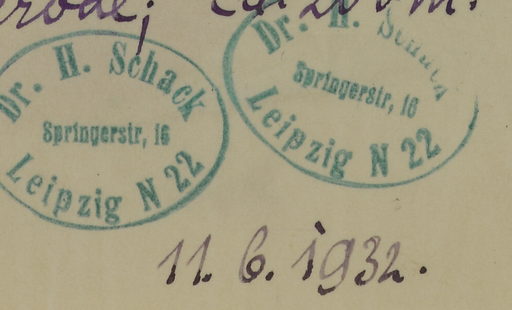 Dr. H. Schack
Springerstr, 16
Leipzig N 22
Dr. H. Schack
Springerstr, 16
Leipzig N 22
11. 6. 1932.